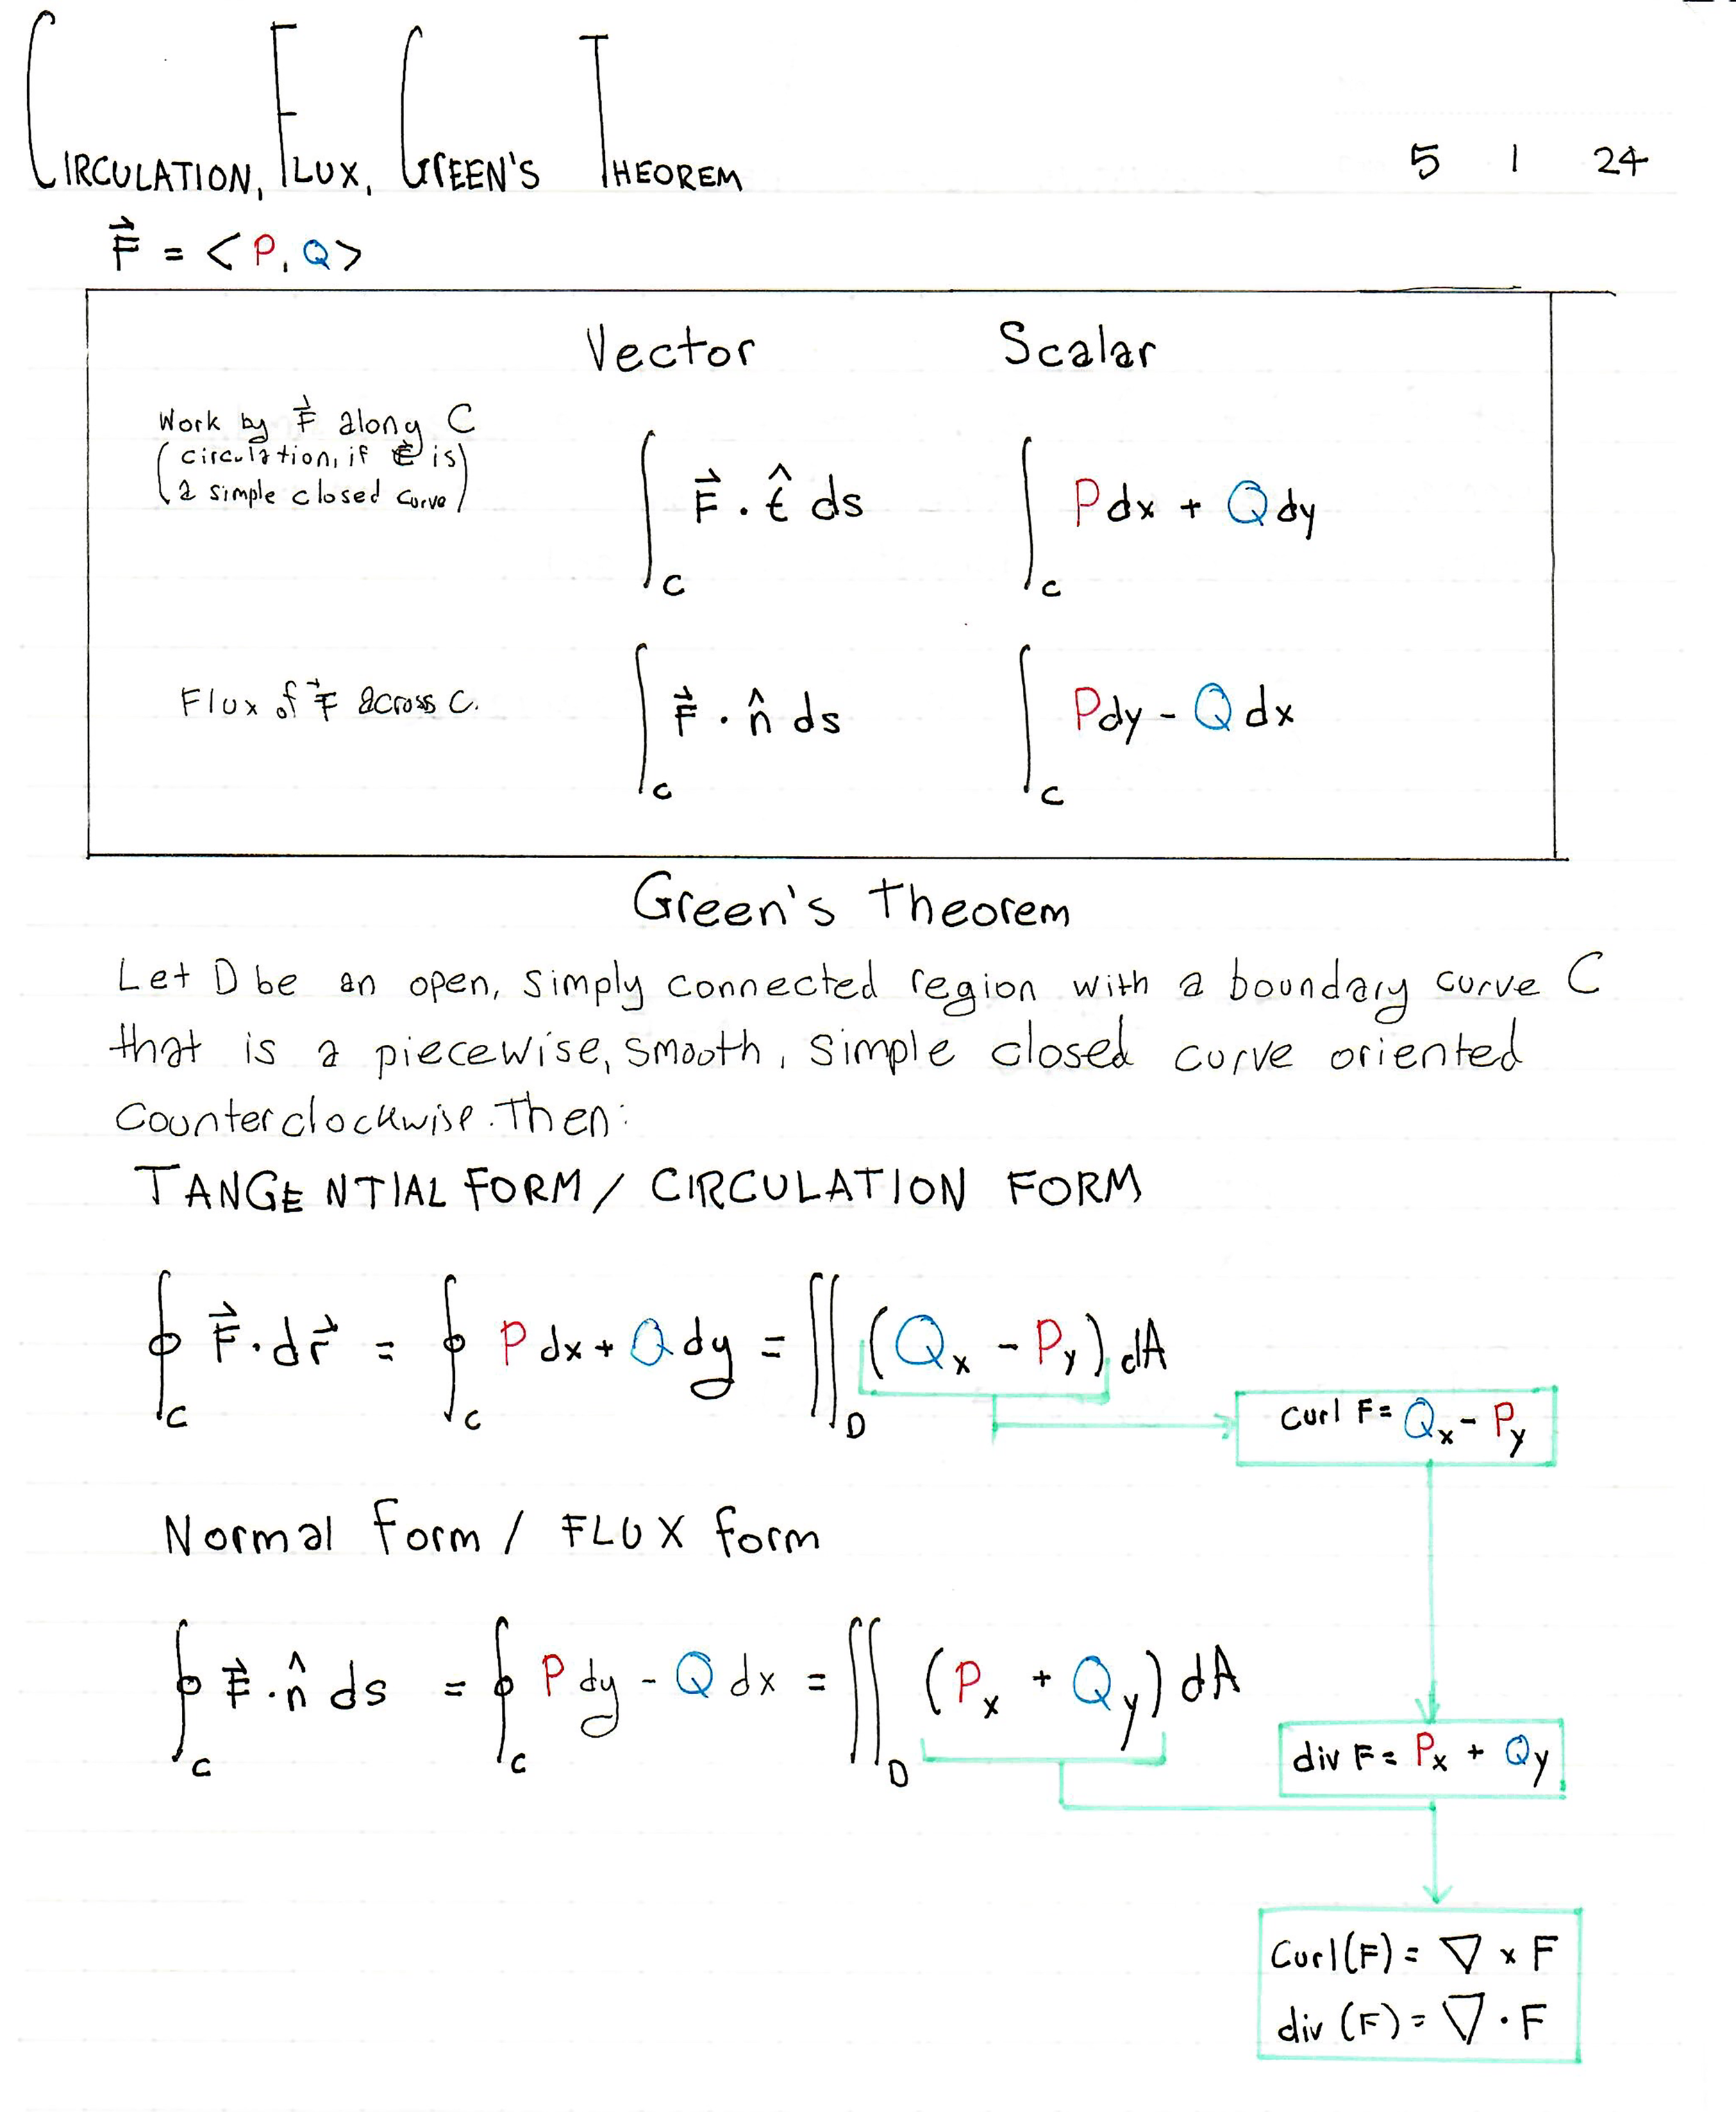 CIRCULATION, FLUX, GREEN'S THEOREM 5 1 24
F⃗ = <P, Q>
Vector Scalar
Work by F⃗ along C
(circulation, if C is
a simple closed curve)
∫_C F⃗ · t̂ ds ∫_C Pdx + Qdy
Flux of F⃗ across C.
∫_C F⃗ · n̂ ds ∫_C Pdy - Qdx
Green's Theorem
Let D be an open, simply connected region with a boundary curve C
that is a piecewise, smooth, simple closed curve oriented
Counterclockwise. Then:
TANGENTIAL FORM / CIRCULATION FORM
∮_C F⃗ · dr⃗ = ∮_C Pdx + Qdy = ∬_D (Q_x - P_y) dA
Curl F = Q_x - P_y
Normal form / FLUX form
∮_C F⃗ · n̂ ds = ∮_C Pdy - Qdx = ∬_D (P_x + Q_y) dA
div F = P_x + Q_y
Curl(F) = ∇ × F
div (F) = ∇ · F